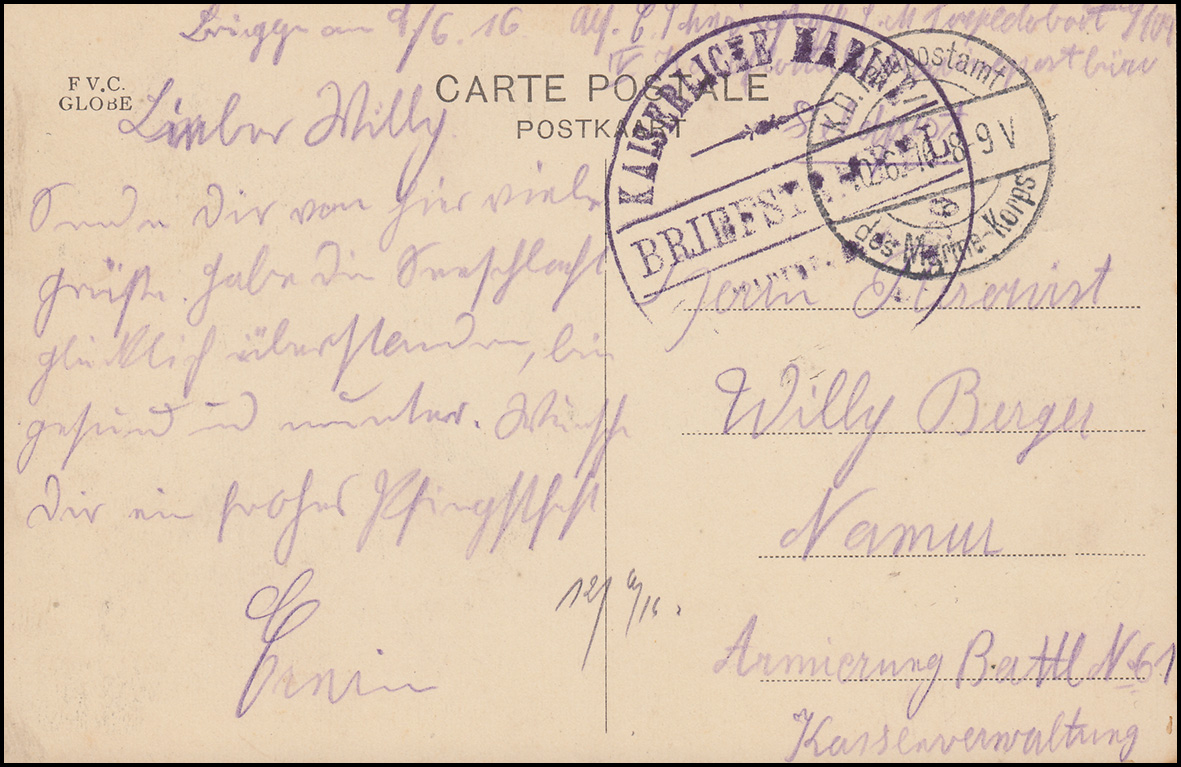 Brügge am 9/6. 16
F V.C.
GLOBE
CARTE POSTALE
POSTKAART
Lieber Willy
Sende Dir von hier viele
Grüße. Habe die Seeschlacht
glücklich überstanden, bin
gesund u munter. Wünsche
Dir ein frohes Pfingstfest
Erwin
12/6/16.
KAISERLICHE MARINE
BRIEFSTEMPEL
K.D. Feldpostamt
10.6.16. 8-9 V
des Marine-Korps
Herrn Armierist
Willy Berger
Namur
Armierung Battl No 61
Kassenverwaltung